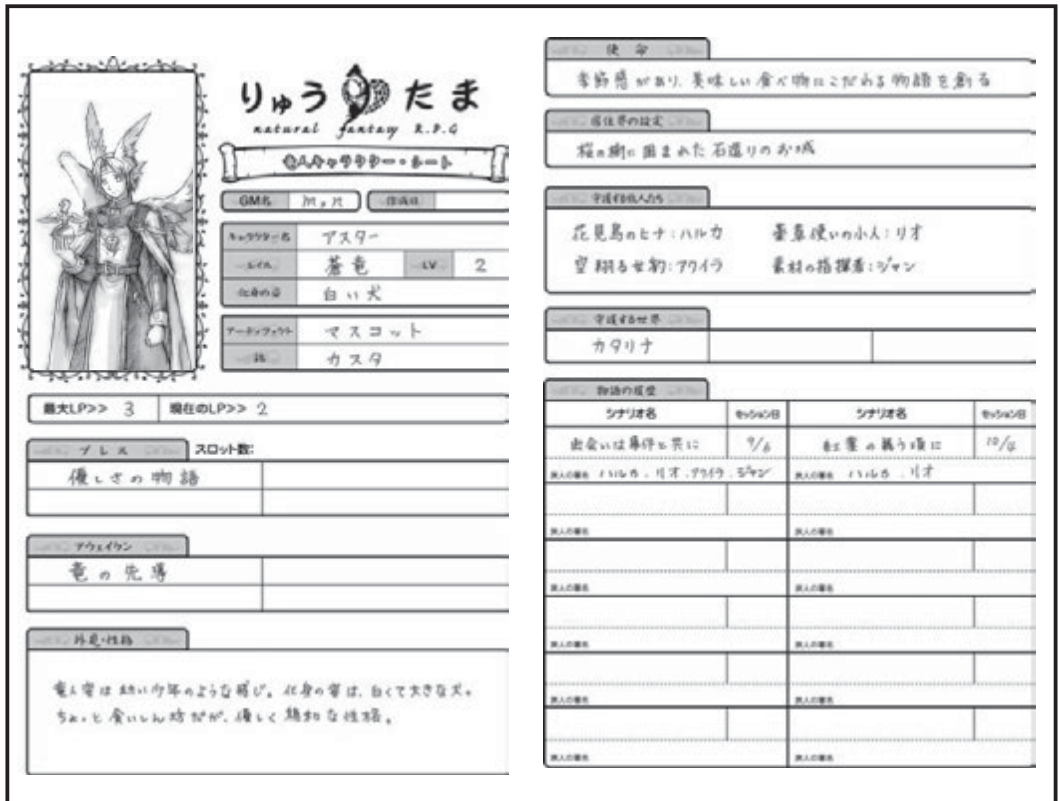 りゅうたま
natural fantasy R.P.G
竜人キャラクター・シート
GM名
作成日
キャラクター名 アスター
ルイス 蒼竜 LV 2
化身の姿 白い犬
アーティファクト マスコット
銘 カスタ
最大LP>> 3 現在のLP>> 2
ブレス スロット数:
優しさの物語
アウェイクン
竜の先導
外見・性格
竜人姿は幼い少年のような感じ。化身の姿は、白くて大きな犬。
ちょっと食いしん坊だが、優しく温和な性格。
使命
季節感があり、美味しい食べ物にこだわる物語を創る
居住界の設定
桜の樹に囲まれた石造りのお城
守護する旅人たち
花見鳥のヒナ:ハルカ 薬草使いの小人:リオ
空翔る世釣:アクイラ 素材の指揮者:ジャン
守護する世界
カタリナ
物語の履歴
シナリオ名 セッション日 シナリオ名 セッション日
出会いは事件と共に 9/6 紅葉の舞う頃に 10/4
旅人の署名 ハルカ、リオ、アクイラ、ジャン 旅人の署名 ハルカ、リオ
旅人の署名 旅人の署名
旅人の署名 旅人の署名
旅人の署名 旅人の署名
旅人の署名 旅人の署名
旅人の署名 旅人の署名